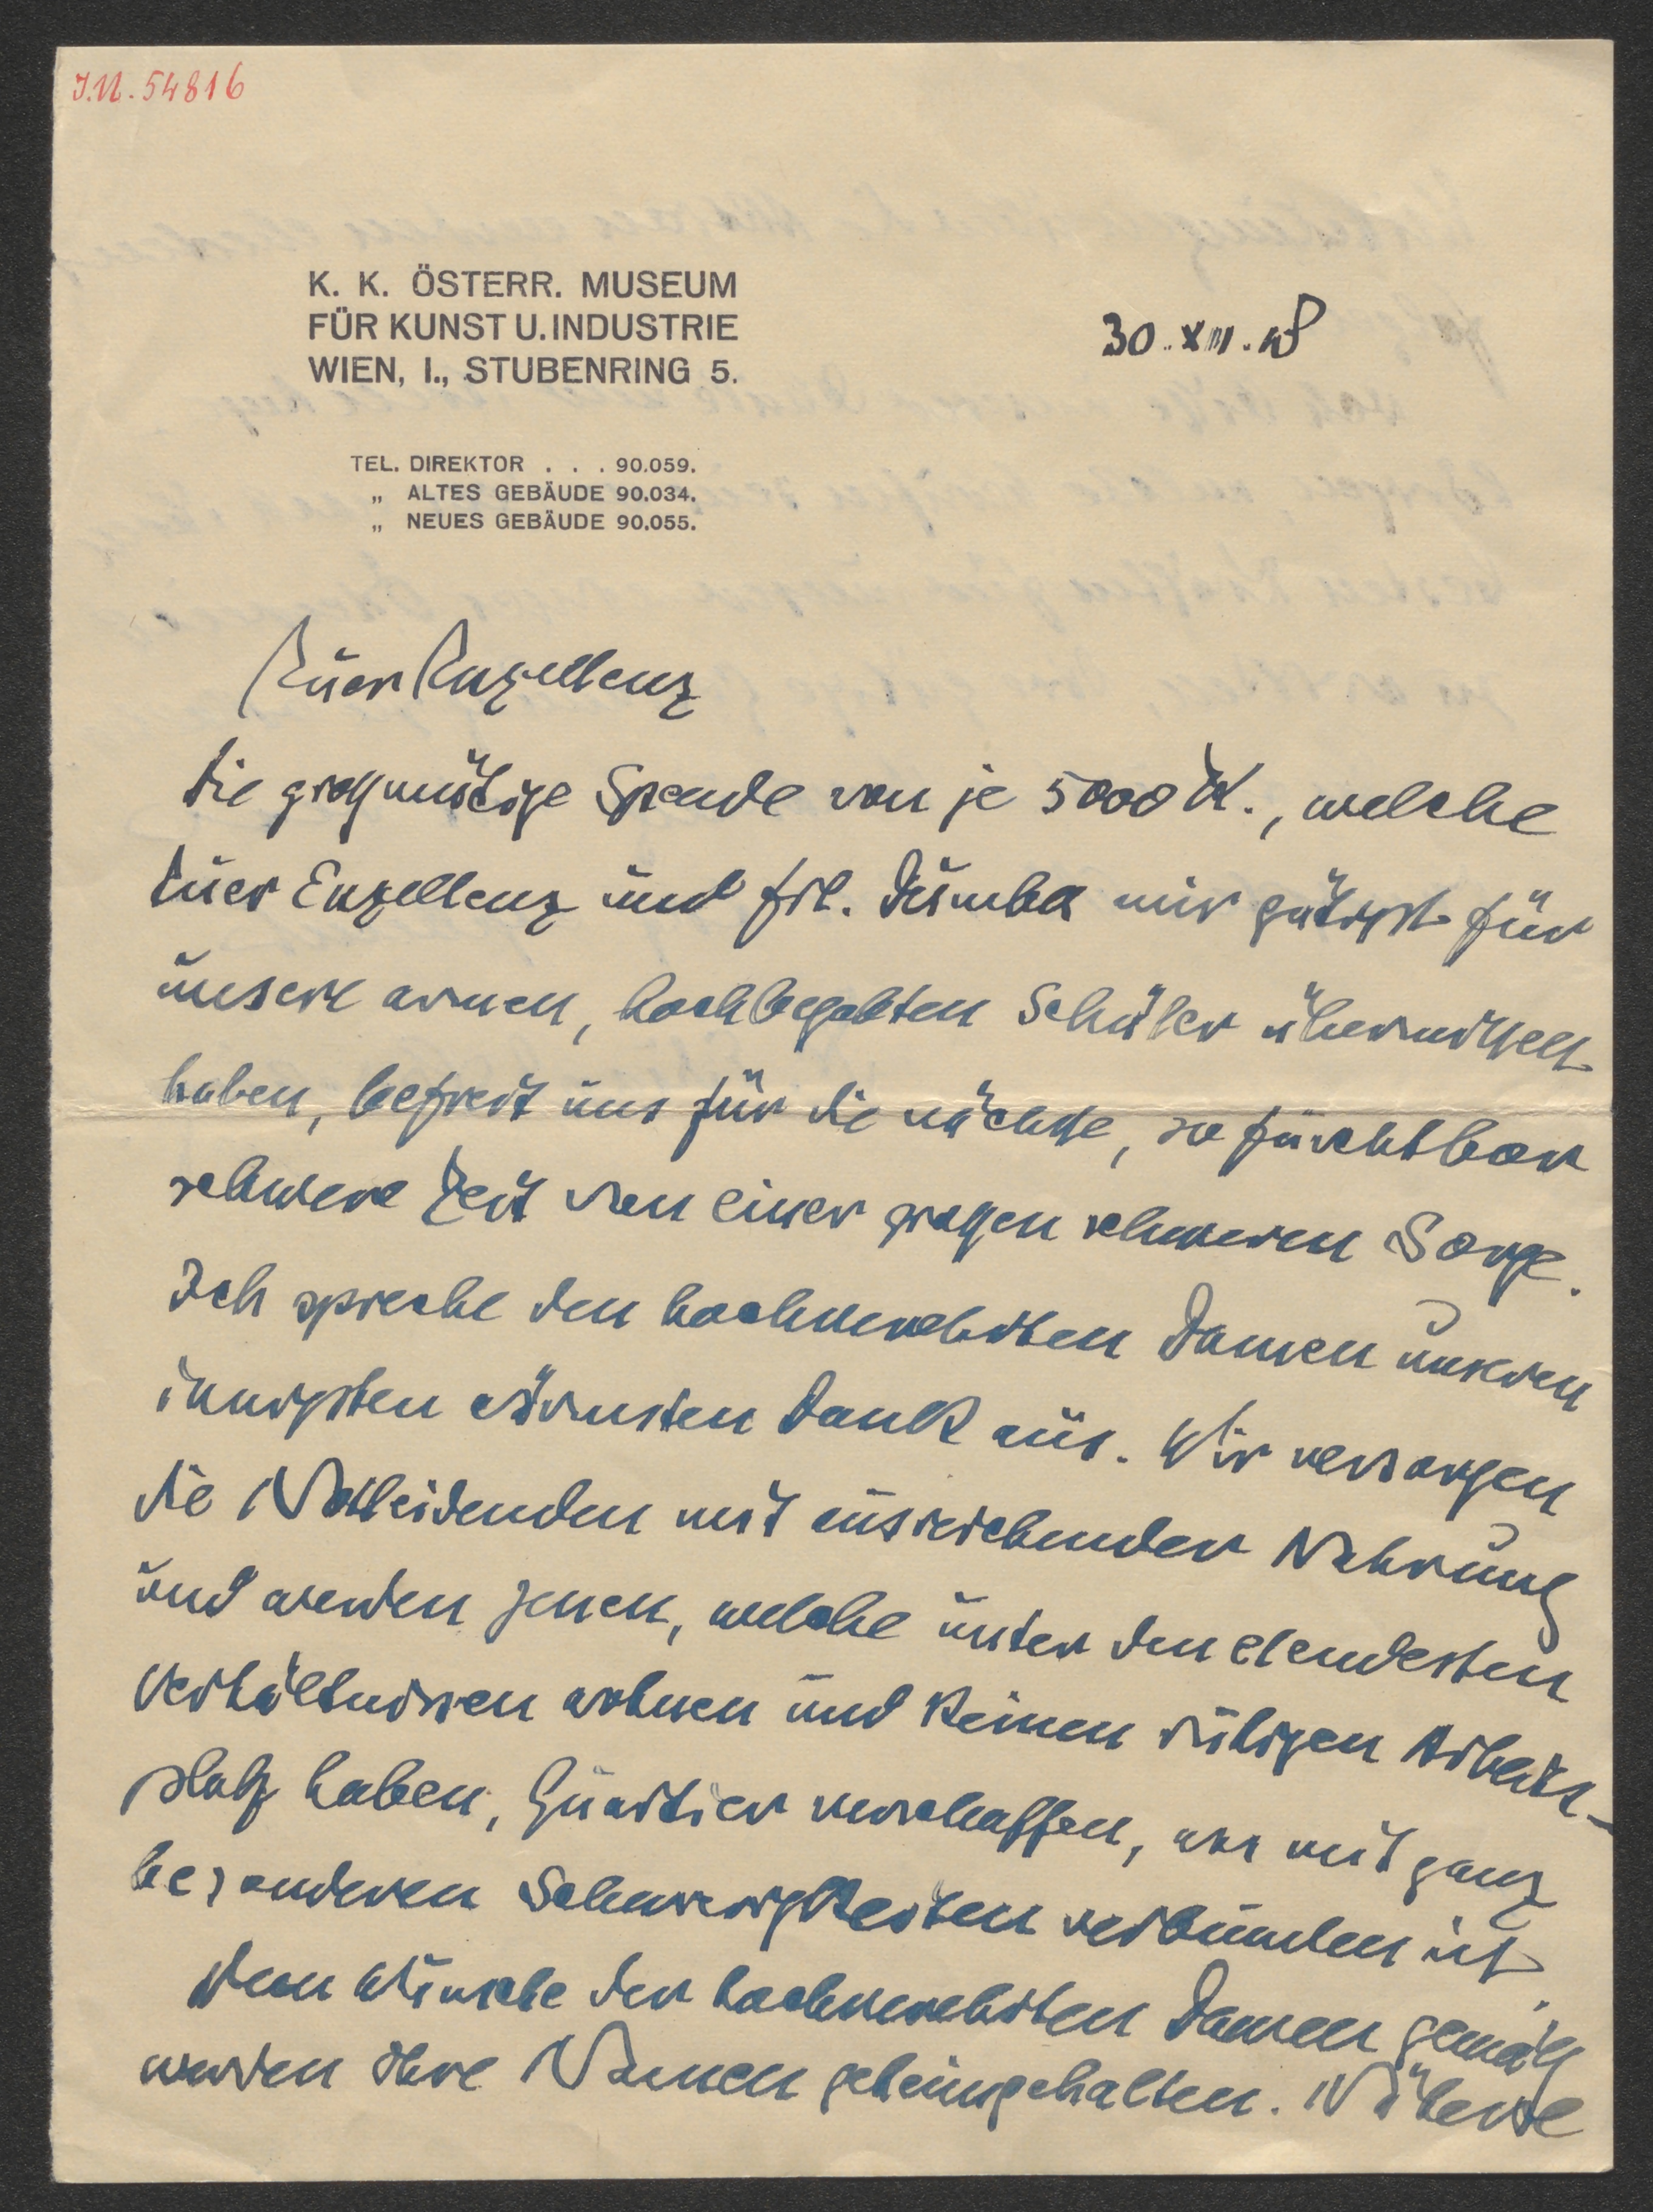 J.N. 54816
K. K. ÖSTERR. MUSEUM
FÜR KUNST U. INDUSTRIE
WIEN, I., STUBENRING 5.
30. XII. 18
TEL. DIREKTOR . . . 90.059.
„ ALTES GEBÄUDE 90.034.
„ NEUES GEBÄUDE 90.055.
Euer Exzellenz
die großmütige Spende von je 5000 K., welche
Euer Exzellenz und Frl. Dumba mir gütigst für
unsere armen, hochbegabten Schüler übermittelt
haben, befreit uns für die nächste, so furchtbar
schwere Zeit von einer großen schweren Sorge.
Ich spreche den hochverehrten Damen unseren
innigsten wärmsten Dank aus. Wir versorgen
die Notleidenden mit ausreichender Nahrung
und werden jenen, welche unter den elendesten
Verhältnissen wohnen und keinen ruhigen Arbeits-
platz haben, Quartier verschaffen, was mit ganz
besonderen Schwierigkeiten verbunden ist.
Dem Wunsche der hochverehrten Damen gemäß
werden Ihre Namen geheimgehalten. Nähere